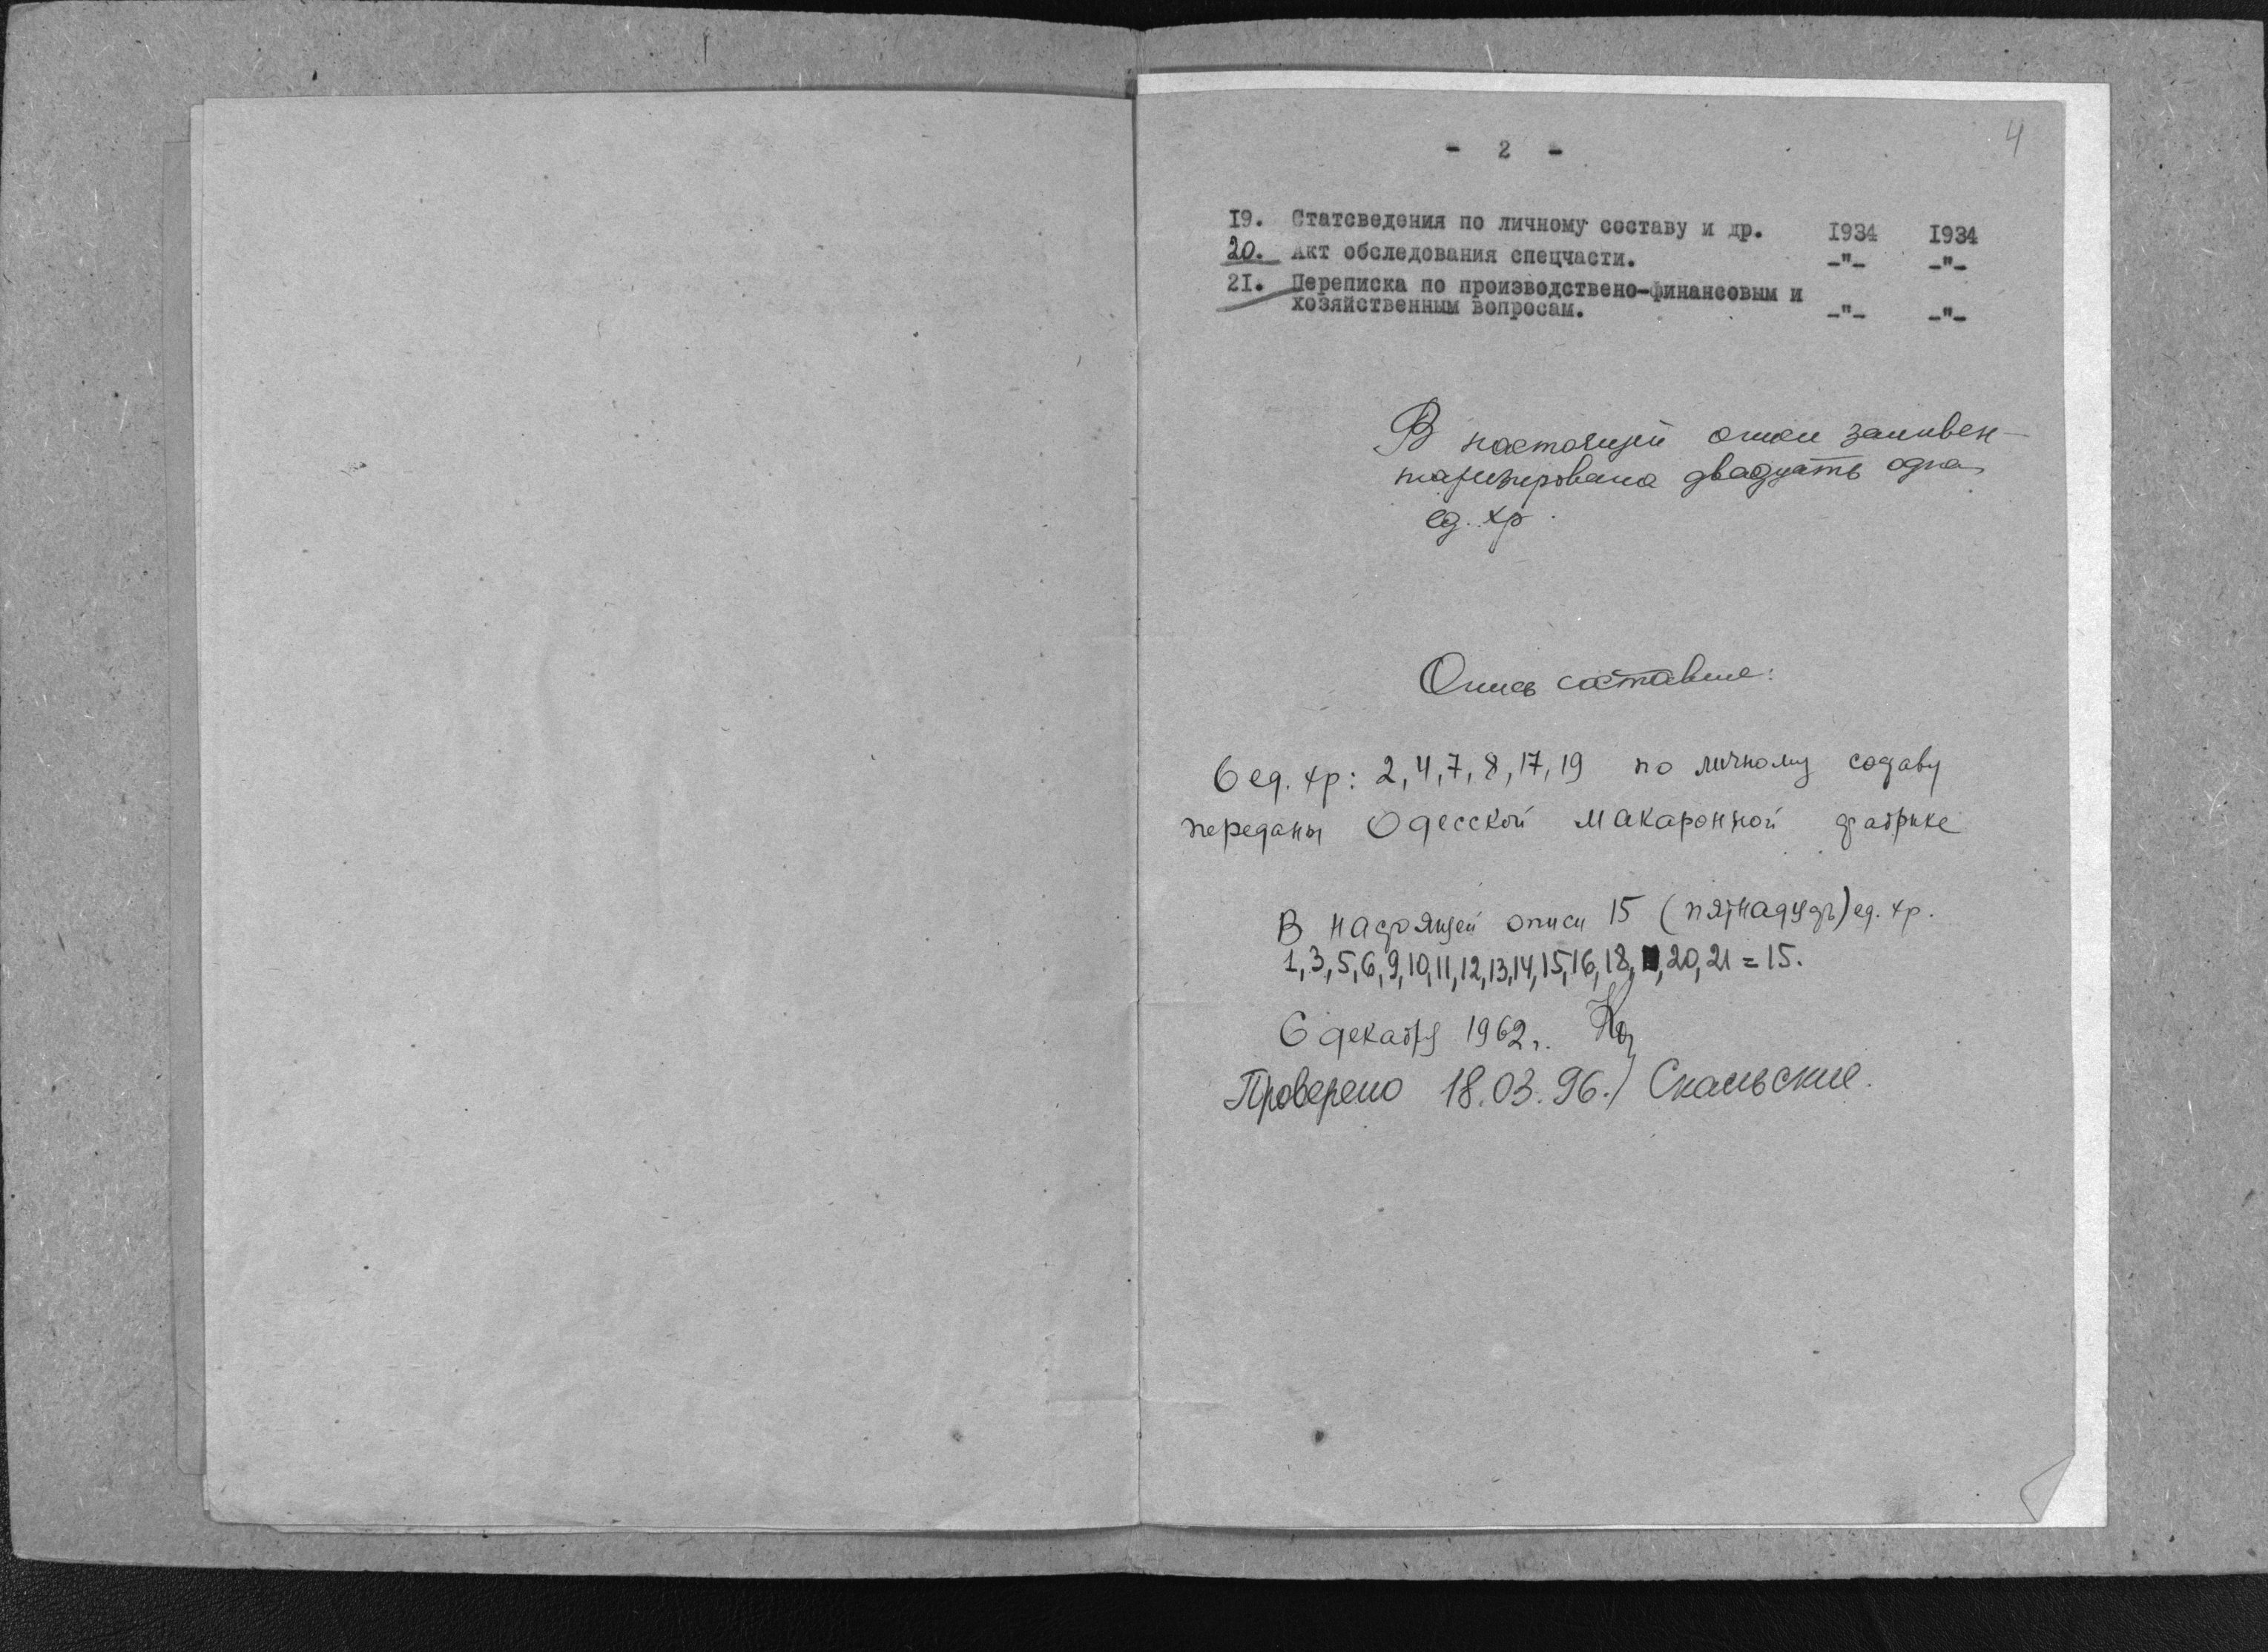 - 2 -
4
19. Статсведения по личному составу и др. 1934 1934
20. Акт обследования спецчасти. -"- -"-
21. Переписка по производствено-финансовым и
хозяйственным вопросам. -"- -"-
В настоящей описи заинвен-
таризирована двадцать одна
ед. хр.
Опись составил:
6 ед. хр: 2, 4, 7, 8, 17, 19 по личному составу
переданы Одесской макаронной фабрике
В настоящей описи 15 (пятнадцать) ед. хр.
1, 3, 5, 6, 9, 10, 11, 12, 13, 14, 15, 16, 18, 20, 21 = 15.
6 декабря 1962 г.
Проверено 18.03.96.